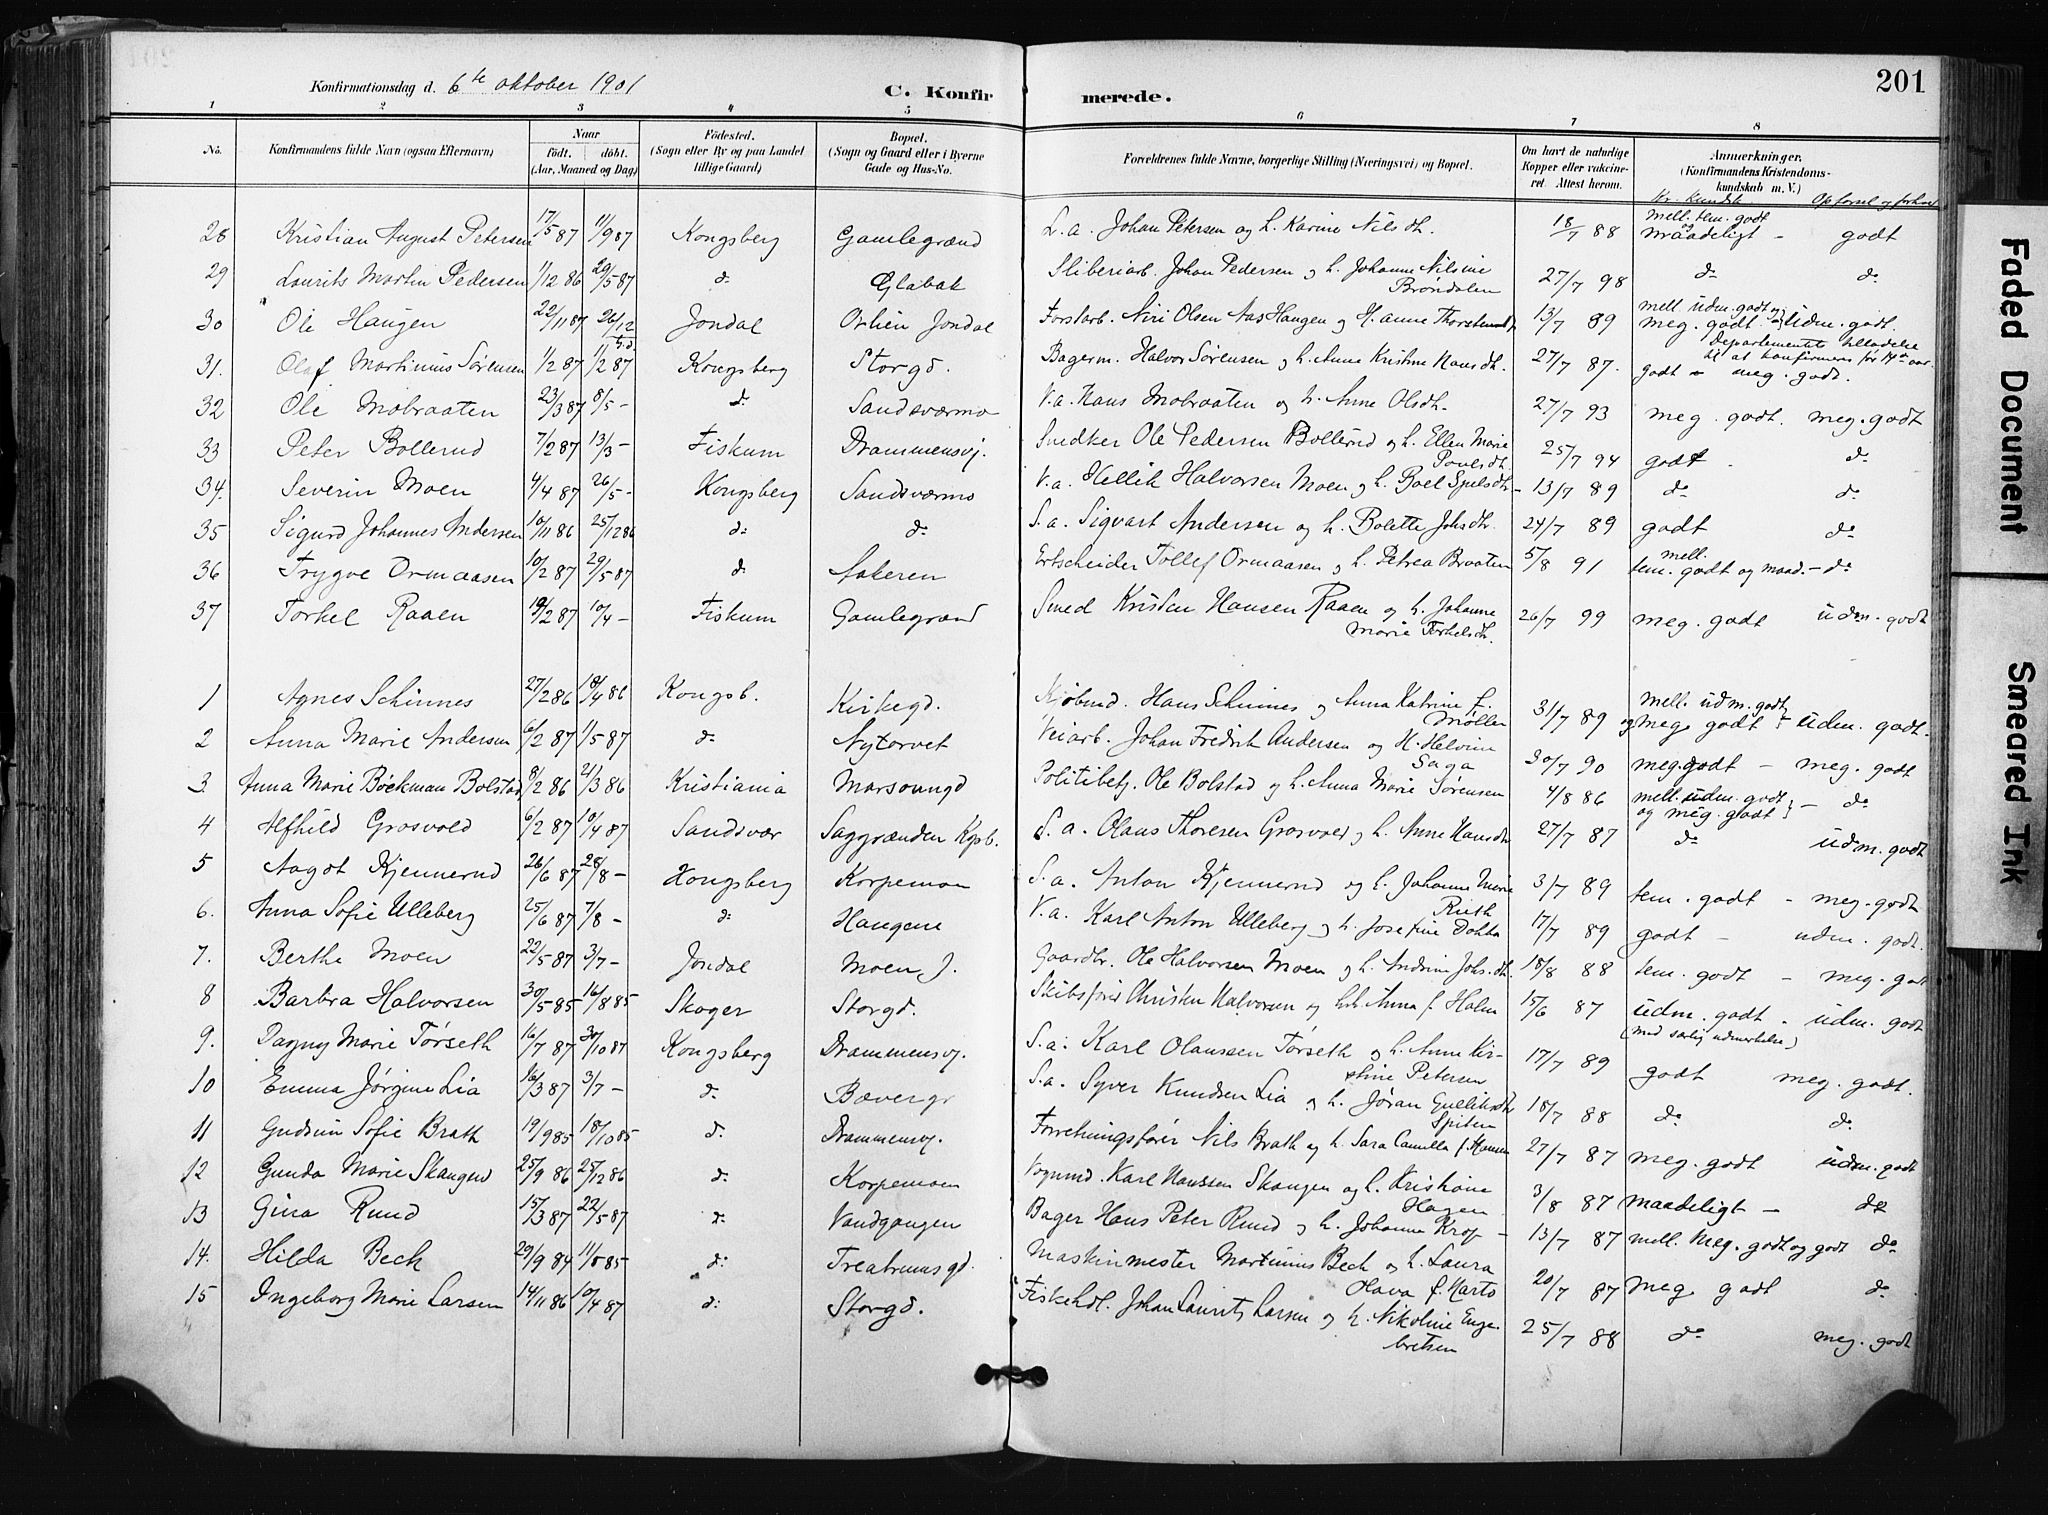 Konfirmationsdag d. 6te oktober 1901
C. Konfirmerede.
201
1 2 3 4 5 6 7 8
No.
Konfirmandens fulde Navn (ogsaa Efternavn)
Naar
født. døbt.
(Aar, Maaned og Dag)
Fødested.
(Sogn eller By og paa Landet
tillige Gaard)
Bopæl.
(Sogn og Gaard eller i Byerne
Gade og Hus-No.
Forældrenes fulde Navne, borgerlige Stilling (Næringsvei) og Bopæl.
Om havt de naturlige
Kopper eller vakcine-
ret Attest herom.
Anmærkninger.
(Konfirmandens Kristendoms-
kundskab m. V.)
Kr. kundsk. Opførsel og forhold
28 Kristian August Petersen 17/5 87 11/9 87 Kongsberg Gamlegrænd S.a. Johan Petersen og h. Karine Nilsdh. 18/7 88 mell. tem. godt og maadeligt - godt
29 Laurits Martin Pedersen 1/12 86 29/5 87 do Glabak Sliberiarb. Johan Pedersen og h. Johanne Nilsine
Brøndalen 27/7 98 do do
30 Ole Haugen 22/11 87 26/12 Jondal Jondal Forstarb. Niri Olsen Aas Haugen og H. Anne 13/7 89 mell. udm. godt og
meg. godt - udm. godt.
31. Olaf Martinius Sørensen 1/2 87 11/2 87 Kongsberg Storgd. Bagerm. Halvor Sørensen og h. Anne Kristine Hansdh. 27/7 87. Departementets tilladelse
til at konfirmeres før 14de aar.
godt - meg. godt.
32 Ole Mobraaten 23/3 87 8/5 - do Sandsværmo V.a. Hans Mobraaten og h. Anne Olsdh. 27/7 93 meg. godt. meg. godt
33 Peter Bollerud 7/2 87 13/3 - Fiskum Drammensvj. Snedker Ole Pedersen Bollerud og h. Ellen Marie
Paulsdh. 25/7 94 godt do
34. Severin Moen 4/4 87 26/5 - Kongsberg Sandsværmo V.a. Kittil Halvorsen Moen og h. Boel 13/7 89 do do
35 Sigurd Johannes Andersen 10/11 86 25/12 86 do do S.a. Sigvart Andersen og h. Bolette Johsdh. 24/7 89 godt do
36 Trygve Ormaasen 10/2 87 29/5 87 do Aakeren Ertscheider Tollef Ormaasen og h. Petrea Braaten 5/8 91 mell.
tem. godt og maad. - do
37 Torkel Raaen 19/2 87 10/4 - Fiskum Gamlegrænd Smed Kristen Hansen Raaen og h. Johanne
Marie Torkelsdh. 26/7 99 meg. godt udm. godt
1 Agnes Schinnes 27/2 86 18/4 86 Kongsb. Kirkegd. Kjøbmd. Hans Schinnes og Anna Katrine f.
Møller 31/7 89 mell. udm. godt
og meg. godt - udm. godt.
2 Anna Marie Andersen 6/2 87 1/5 87 do Nytorvet Veiarb. Johan Fredrik Andersen og H. Helvine
Saga 30/7 90 meg. godt - meg. godt
3 Anna Marie Bøckman Bolstad 8/2 86 21/3 86 Kristiania Politibetj. Ole Bolstad og h. Anna Marie Sørensen 4/8 86 mell. udm. godt
og meg. godt - do
4 Alfhild Grosvold 6/2 87 10/4 87 Sandsvær Saggrænden Kgsb. S.a. Olaus Thoresen Grosvold og h. Anne Hansdh. 27/7 87 do udm. godt
5 Aagot Kjennerud 26/6 87 28/8 - Kongsberg Korpemoen S.a. Anton Kjennerud og h. Johanne Marie
Rueth 3/7 89 tem. godt - meg. godt
6. Anna Sofie Ulleberg 25/6 87 7/8 - do Haugene V.a. Karl Anton Ulleberg og h. Josefine Dokka 17/7 89 godt - udm. godt.
7. Berthe Moen 22/5 87 3/7 - Jondal Moen J. Gaardbr. Ole Halvorsen Moen og h. Andrine Johs.dh. 18/8 88 tem. godt - meg. godt
8 Barbra Halvorsen 30/5 85 16/8 85 Skoger Storgd. Skibsfører Christen Halvorsen og h. Anna f. Holm 15/6 87 udm. godt - udm. godt
(med særlig udmærkelse)
9. Dagny Marie Tørseth 16/7 87 30/10 87 Kongsberg Drammensvj. S.a. Karl Olaussen Tørseth og h. Anne Kir-
stine Petersen 17/7 89 godt meg. godt.
10 Emma Jørgine Lia 16/3 87 3/7 - do Bævergr S.a. Syver Knudsen Lia og h. Jøran Gulliksdh.
Spiten 18/7 88 do do
11 Gudrun Sofie Brath 19/9 85 18/10 85 do Drammensvj. Forretningsfører Nils Brath og h. Sara Camilla f. Hansen 27/7 87 meg. godt udm. godt
12 Gunda Marie Skaugen 25/9 86 25/12 86 do Korpemoen Karl Hanssen Skaugen og h. Kristiane
Hagen 3/8 87 maadeligt - do
13 Gina Ruud 15/3 87 22/5 87 do Vandgangen Bager Hans Peter Ruud og h. Johanne Krop - 13/7 87 mell. meg. godt og godt do
14. Hilda Beck 29/9 84 85 do Treatrumsgd. Maskinmester Martinius Beck og h. Laura
Olava f. Marto 20/7 87 meg. godt do
15 Ingeborg Marie Larsen 14/11 86 10/4 87 do Storgd. Fiskehdl. Johan Laurits Larsen og h. Nikoline Enge-
bretsen 25/7 88 do meg. godt
Faded Document
Smeared Ink